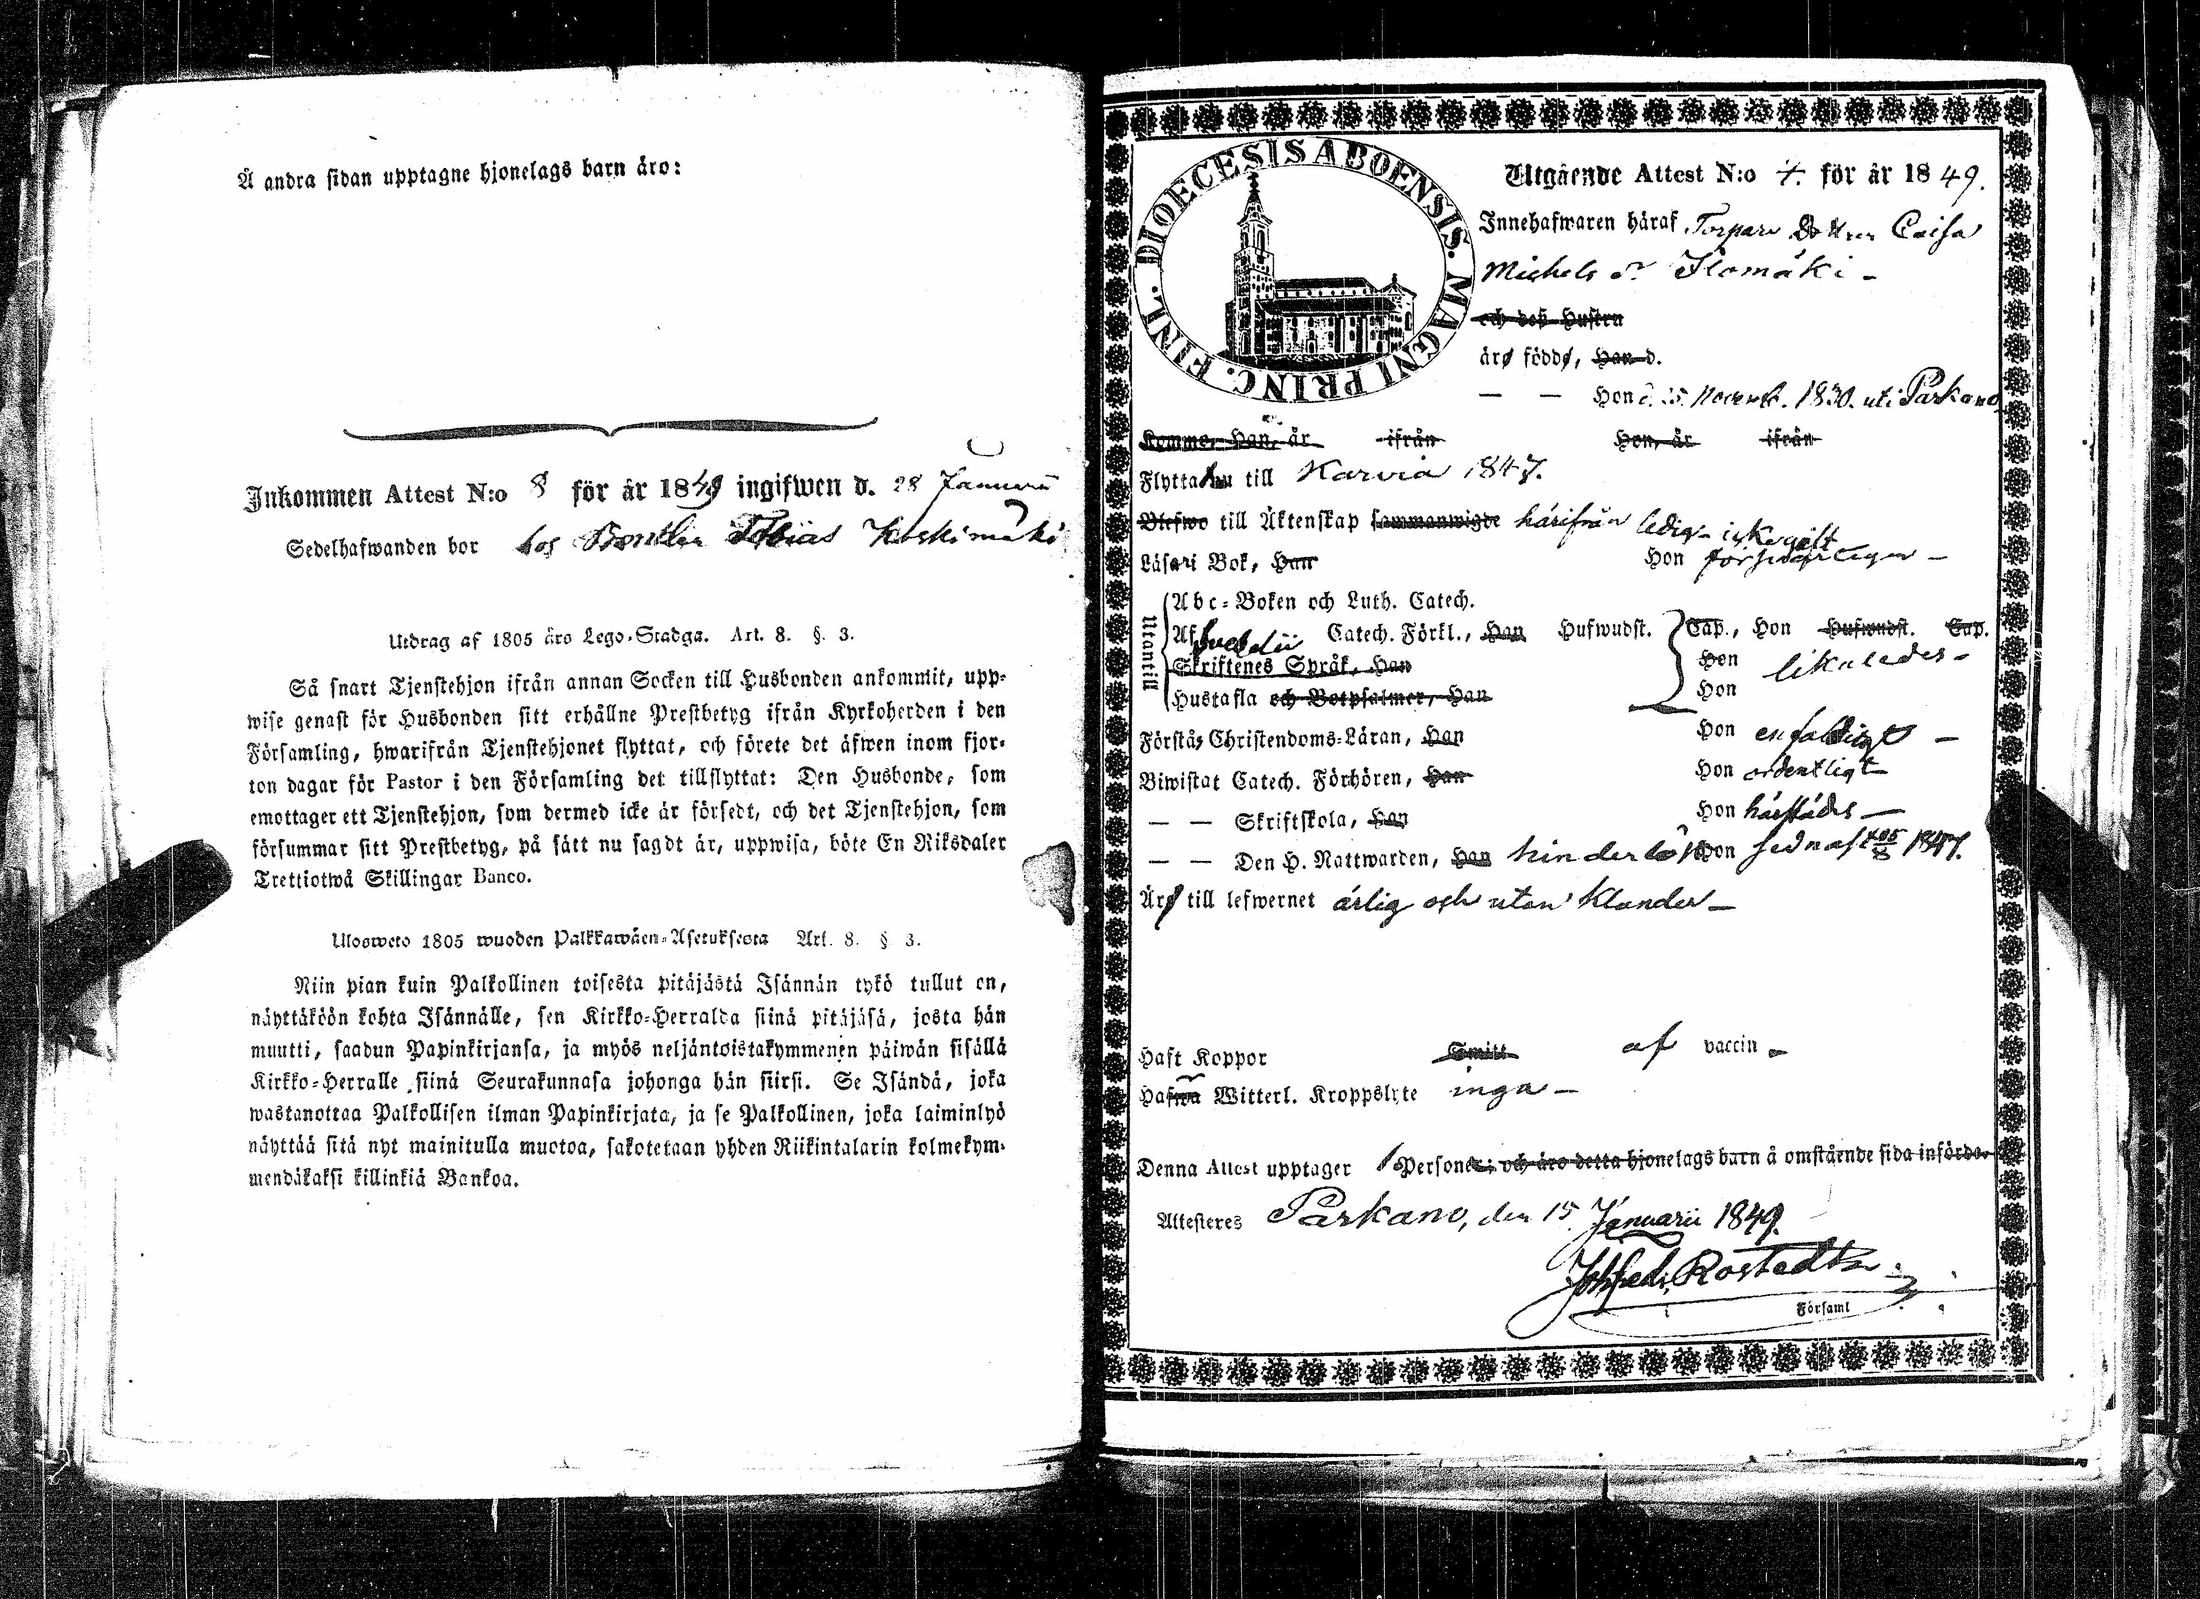 Å andra sidan upptagne hjonelags barn äro:
Inkommen Attest N:o 8 för år 1849 ingifwen d. 28 Januarii
Sedelhafwanden bor hos Bonden Tobias Koskimäki
Utdrag af 1805 års Lego-Stadga. Art. 8. §. 3.
Så snart Tjenstehjon ifrån annan Socken till Husbonden ankommit, upp-
wise genast för Husbonden sitt erhållne Prestbetyg ifrån Kyrkoherden i den
Församling, hwarifrån Tjenstehjonet flyttat, och förete det äfwen inom fjor-
ton dagar för Pastor i den Församling det tillflyttat: Den Husbonde, som
emottager ett Tjenstehjon, som dermed icke är försedt, och det Tjenstehjon, som
försummar sitt Prestbetyg, på sätt nu sagdt är, uppwisa, böte En Riksdaler
Trettiotwå Skillingar Banco.
Ulosweto 1805 wuoden Palkkawäen-Asetuksesta Art. 8. § 3.
Niin pian kuin Palkollinen toisesta pitäjästä Isännän tykö tullut on,
näyttäköön kohta Isännälle, sen Kirkko-Herralda siinä pitäjäsä, josta hän
muutti, saadun Papinkirjansa, ja myös neljäntoistakymmenen päiwän sisällä
Kirkko-Herralle siinä Seurakunnasa johonga hän siirsi. Se Isändä, joka
wastanottaa Palkollisen ilman Papinkirjata, ja se Palkollinen, joka laiminlyö
näyttää sitä nyt mainitulla muotoa, sakotetaan yhden Riikintalarin kolmekym-
mendäkaksi killinkiä Bankoa.
DIOECESIS ABOENSIS. MAGNI PRINC. FINL.
Utgående Attest N:o 4. för år 1849.
Innehafwaren häraf Torpare Dottren Caisa
Michels dr Ilomäki -
och deß Hustru
äro födde, Han d.
— — Hon d. Novemb. 1830. uti Parkano
Kommo, Han, år ifrån Hon, år ifrån
Flytta nu till Karvia 1847.
Blefwo till Äktenskap sammanwigde härifrån ledig - icke gift
Läsa i Bok, Han Hon försvarligen -
Utantill
Abc-Boken och Luth. Catech.
Af Svebelii Catech. Förkl., Han Hufwudst. Cap., Hon Hufwudst. Cap.
Skriftenes Språk, Han Hon likaledes -
Hustafla och Botpsalmer, Han Hon
Förstå Christendoms-Läran, Han Hon enfaldigt -
Biwistat Catech. Förhören, Han Hon ordentligt
— — Skriftskola, Han Hon härstädes -
— — Den H. Nattwarden, Han hinderlös Hon sednast 1847.
Äro till lefwernet ärlig och utan klander -
Haft Koppor Smitt af vaccin -
Hafwa Witterl. Kroppslyte inga -
Denna Attest upptager 1 Personer; och äro detta hjonelags barn å omstående sida införde.
Attesteres Parkano, den 15 Januarii 1849.
Rostedt
Församl